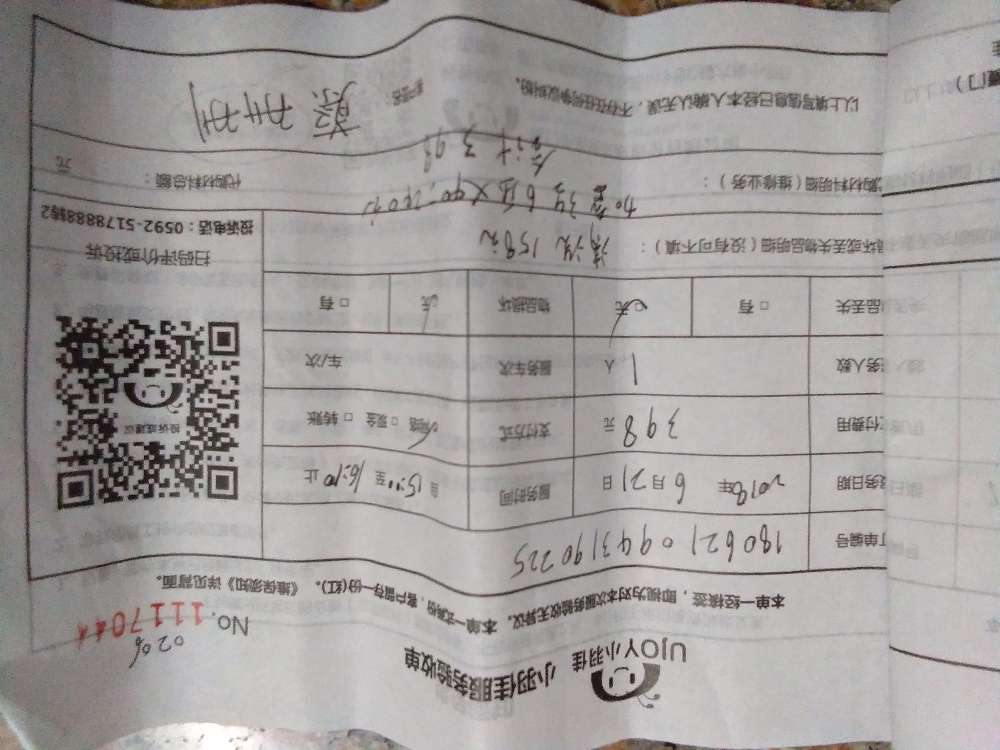 UJOY小羽佳
小羽佳服务验收单
0206
No.1117044
本单一经核签，即视为对本次服务验收无异议。本单一式两份，客户留存一份(红)。《维保须知》详见背面。
订单编号 180621094319022S
务日期 2018年6月21日 服务时间 自15:00至16:40止
付费用 398元 支付方式 网络 □现金 □转账
务人数 1人 服务车次 车/次
品丢失 □有 无 物品损坏 无 □有
投诉或建议
扫码评价或投诉
投诉电话：0592-5178888转2
坏或丢失物品明细（没有可不填）：
清洗158元
购材料明细（维修业务）： 代购材料总额： 元
合计398
以上填写信息已经本人确认无误，不存在任何争议纠纷。
厦门）